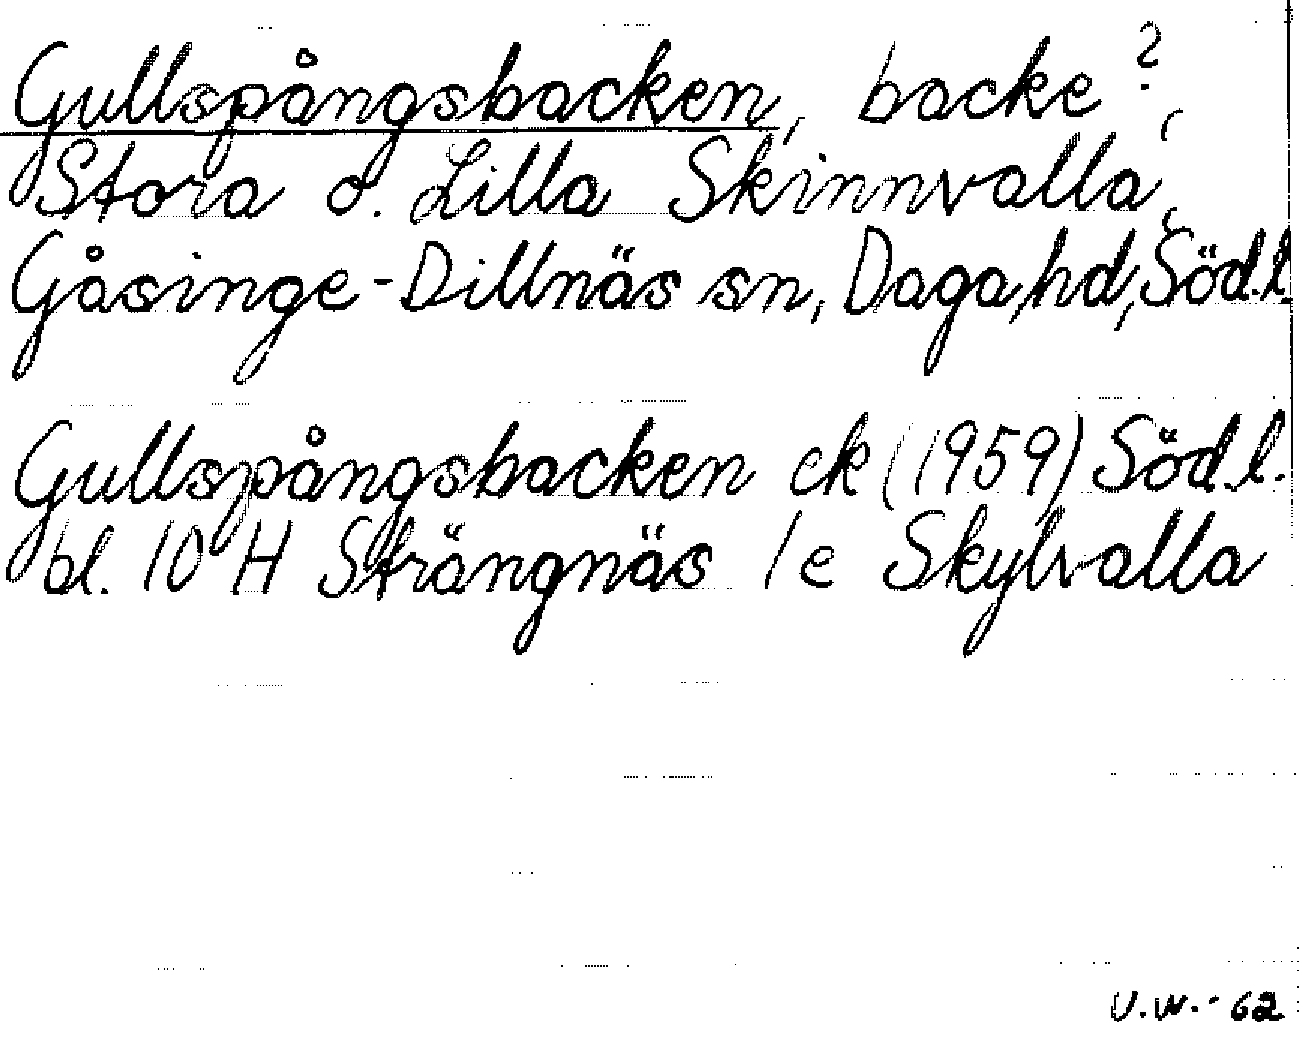 Gullspångsbacken, backe?,
Stora o. Lilla Skinnvalla,
Gåsinge-Dillnäs sn, Daga hd, Söd.l.
Gullspångsbacken ek (1959) Söd.l.
bl. 10 H Strängnäs 1 e Skylvalla
U.W.-62